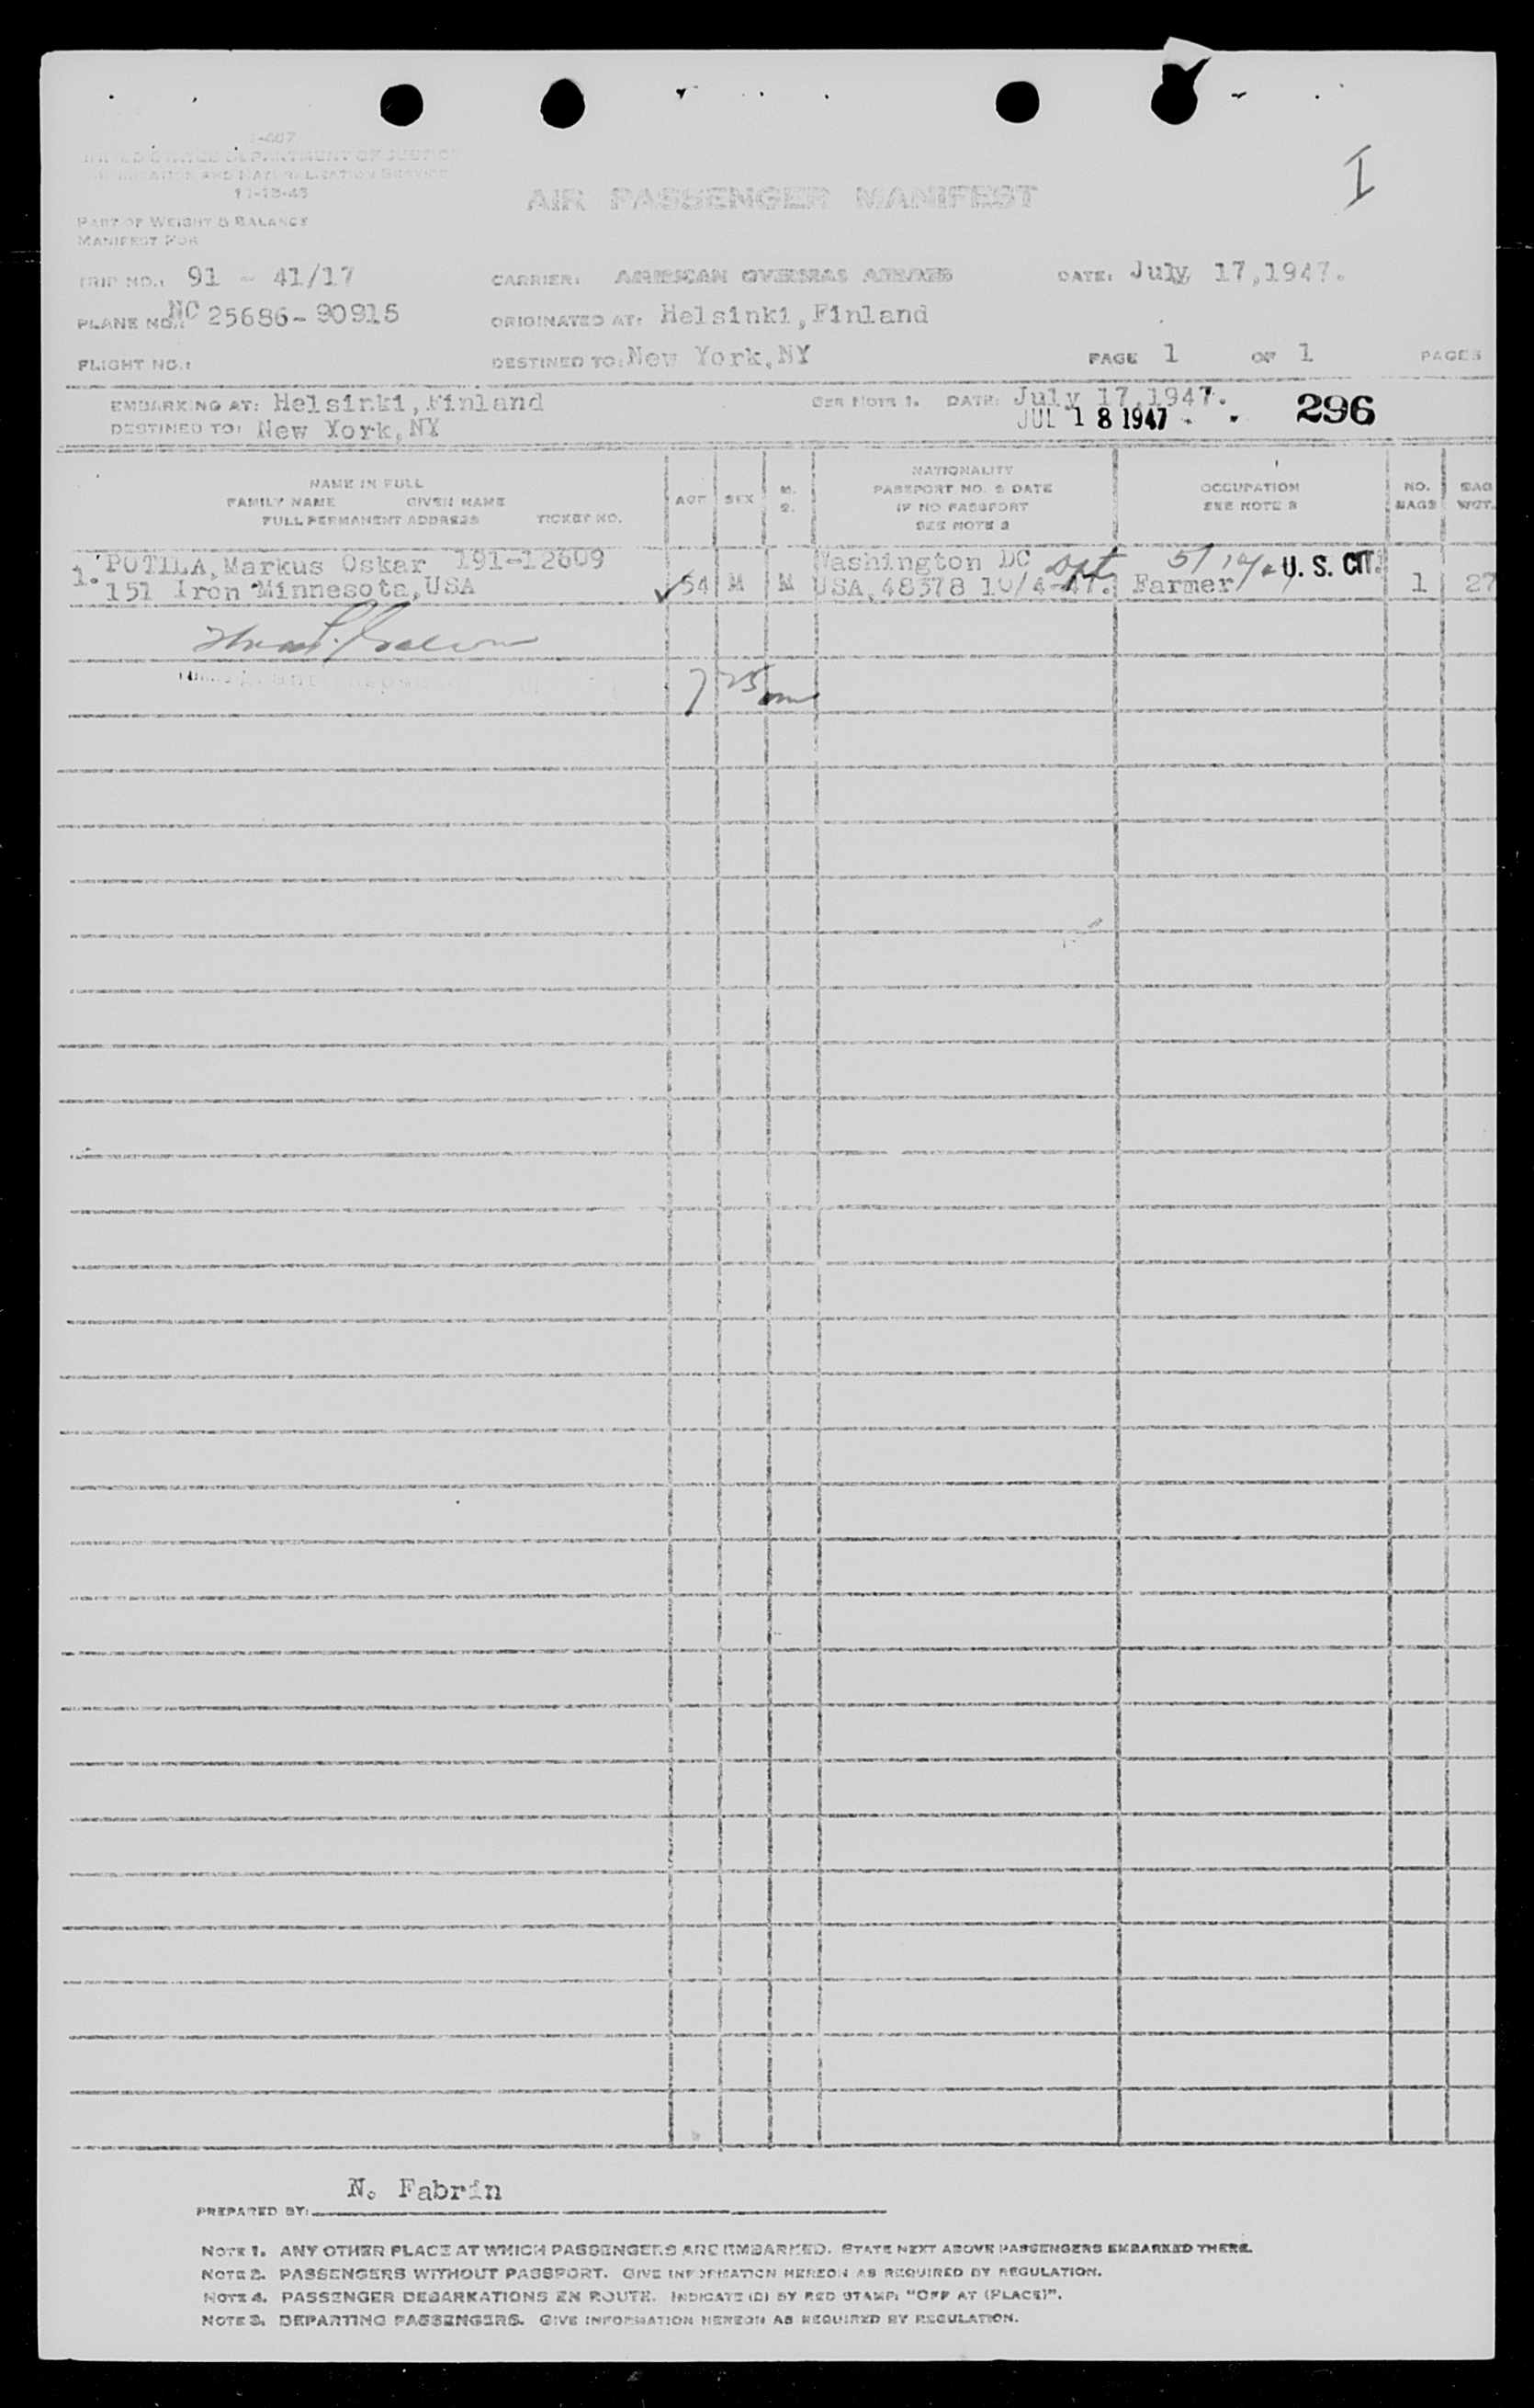 I-467
UNITED STATES DEPARTMENT OF JUSTICE
IMMIGRATION AND NATURALIZATION SERVICE
11-13-45
I
AIR PASSENGER MANIFEST
PART OF WEIGHT & BALANCE
MANIFEST FOR
TRIP NO.: 91 - 41/17 CARRIER: AMERICAN OVERSEAS AIRLINES DATE: July 17,1947.
PLANE NO.: NC 25686-90915 ORIGINATED AT: Helsinki,Finland
FLIGHT NO.: DESTINED TO: New York,NY PAGE 1 OF 1 PAGES
EMBARKING AT: Helsinki,Finland SEE NOTE 1. DATE: July 17,1947.
DESTINED TO: New York,NY JUL 18 1947 296
NAME IN FULL
FAMILY NAME GIVEN NAME
FULL PERMANENT ADDRESS TICKET NO.
AGE SEX M. S.
NATIONALITY
PASSPORT NO. & DATE
IF NO PASSPORT
SEE NOTE 2
OCCUPATION
SEE NOTE 3
NO. BAGS
BAG WGT.
1. POTILA,Markus Oskar 191-12609 Washington DC U. S. CIT.
151 Iron Minnesota,USA 54 M M USA,48378 10/4-47. Farmer 1 27
7 25
PREPARED BY: N. Fabrin
NOTE 1. ANY OTHER PLACE AT WHICH PASSENGERS ARE EMBARKED. STATE NEXT ABOVE PASSENGERS EMBARKED THERE.
NOTE 2. PASSENGERS WITHOUT PASSPORT. GIVE INFORMATION HEREON AS REQUIRED BY REGULATION.
NOTE 4. PASSENGER DEBARKATIONS EN ROUTE. INDICATE (D) BY RED STAMP: "OFF AT (PLACE)".
NOTE 3. DEPARTING PASSENGERS. GIVE INFORMATION HEREON AS REQUIRED BY REGULATION.